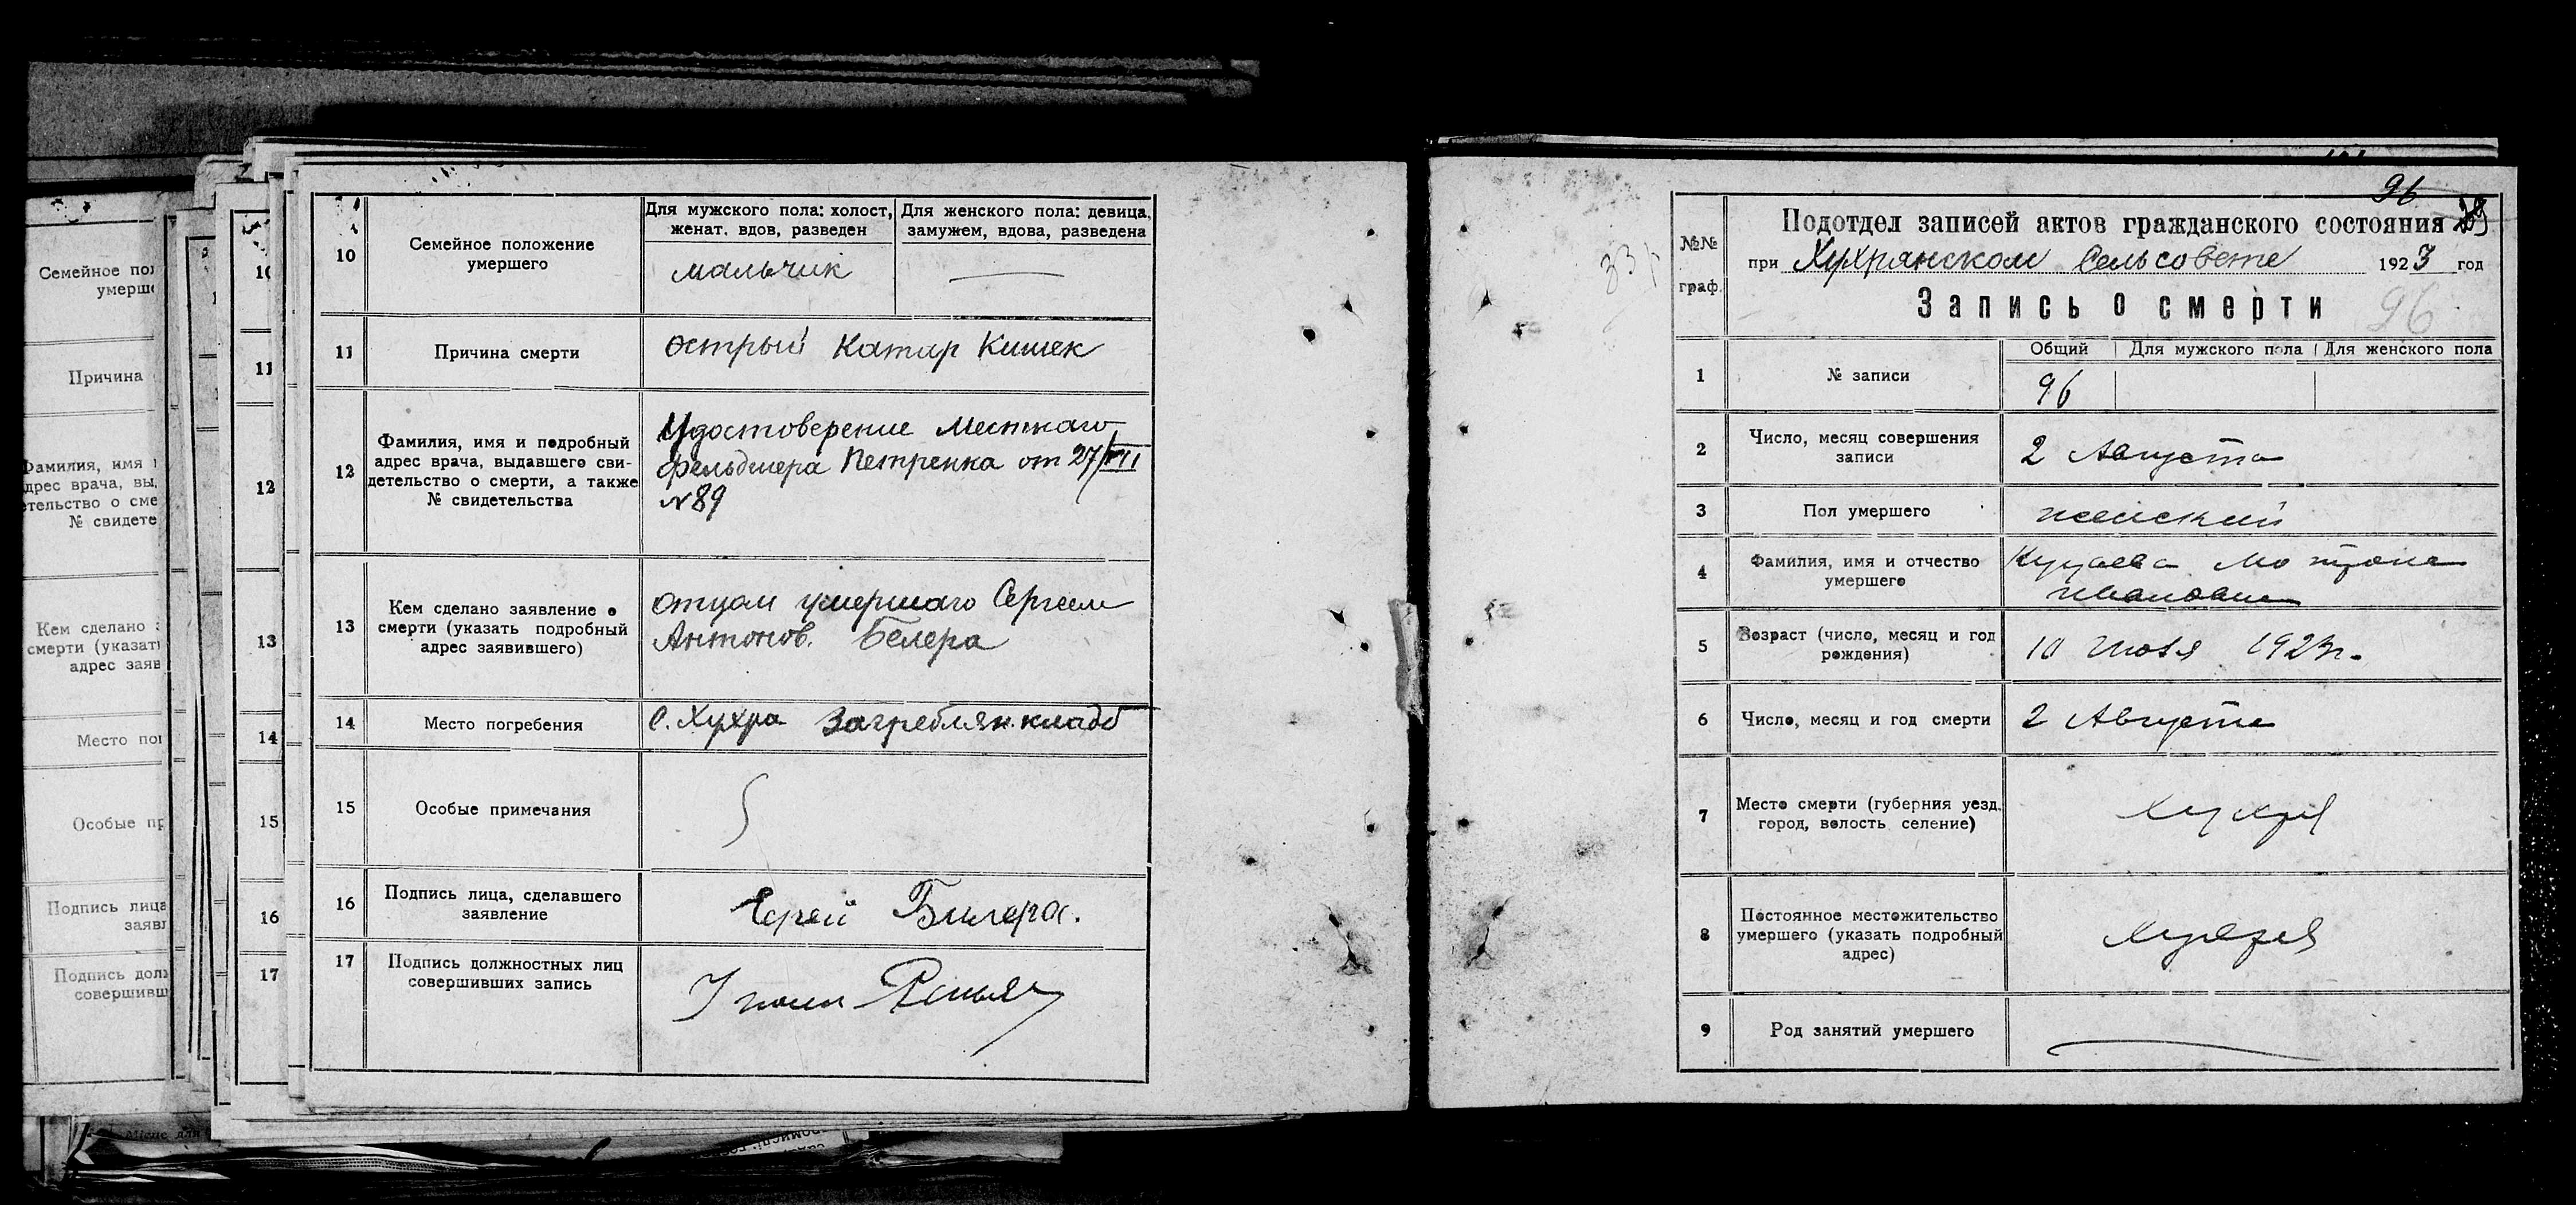 10
Семейное положение
умершего
Для мужского пола: холост,
женат, вдов, разведен
Для женского пола: девица,
замужем, вдова, разведена
мальчик
11
Причина смерти
острый Катар Кишек
12
Фамилия, имя и подробный
адрес врача, выдавшего сви-
детельство о смерти, а также
№ свидетельства
Удостоверение Местнаго
фельдшера Петренка от 27/VII
N89
13
Кем сделано заявление о
смерти (указать подробный
адрес заявившего)
отцом умершаго Сергеем
Антонов. Белера
14
Место погребения
С. Хухра Загреблян. кладб
15
Особые примечания
16
Подпись лица, сделавшего
заявление
Билера.
17
Подпись должностных лиц
совершивших запись
96
№№
граф.
Подотдел записей актов гражданского состояния
при Хухрянском Сельсовете 1923 год
Запись о смерти
96
1
№ записи
Общий
Для мужского пола
Для женского пола
96
2
Число, месяц совершения
записи
2 Августа
3
Пол умершего
женский
4
Фамилия, имя и отчество
умершего
5
Возраст (число, месяц и год
рождения)
10 1923 г.
6
Число, месяц и год смерти
2 Августа
7
Место смерти (губерния уезд,
город, волость селение)
Хухря
8
Постоянное местожительство
умершего (указать подробный
адрес)
Хухря
9
Род занятий умершего
Семейное пол
умерше
10
Причина
11
Фамилия, имя
адрес врача, вы
етельство о сме
№ свидете
12
Кем сделано
смерти (указат
адрес заяв
13
Место пог
14
Особые пр
15
Подпись лица
заявл
16
Подпись долж
совершивш
17